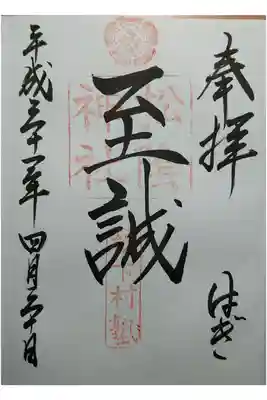 奉拝
はぎ
松陰
神社
至誠
村塾
平成三十一年四月三十日